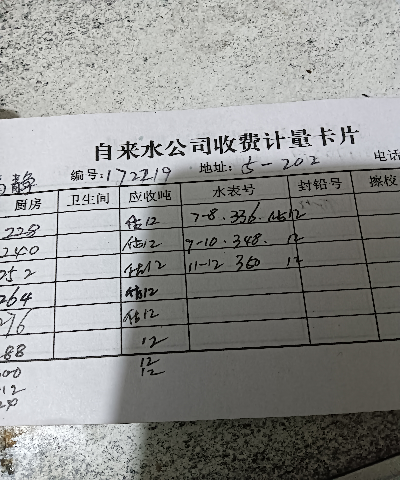 自来水公司收费计量卡片
静 编号:172219 地址:5-202 电话
厨房 卫生间 应收吨 水表号 封铅号 擦校
228 估12 7-8.336.估12
240 估12 9-10.348. 12
252 估12 11-12 360 12
264 估12
276 估12
288 12
300 12
312 12
324